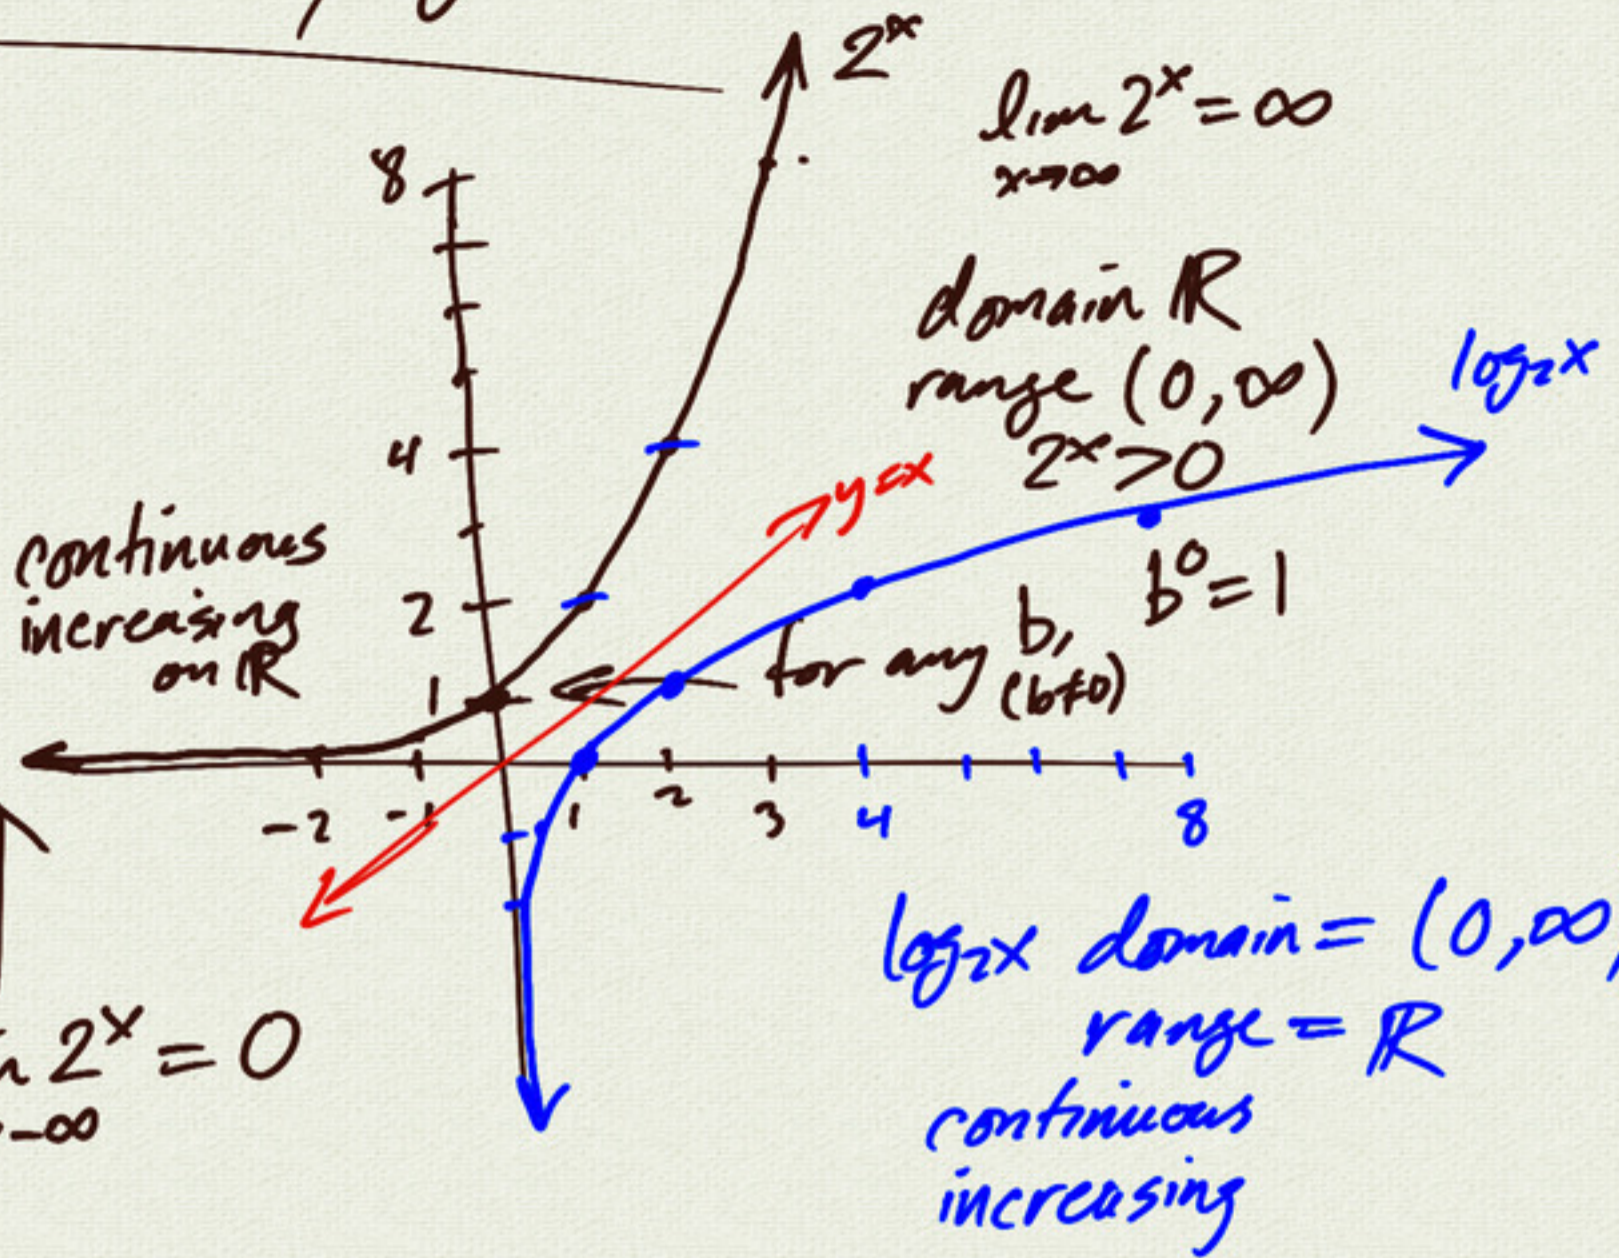 2^x
lim 2^x = ∞
x→∞
8
domain ℝ
range (0,∞)
2^x > 0
log₂x
4
y=x
continuous
increasing
on ℝ
2
1
for any b, b⁰ = 1
(b≠0)
-2 -1 1 2 3 4 8
log₂x domain = (0,∞)
range = ℝ
continuous
increasing
2^x = 0
-∞